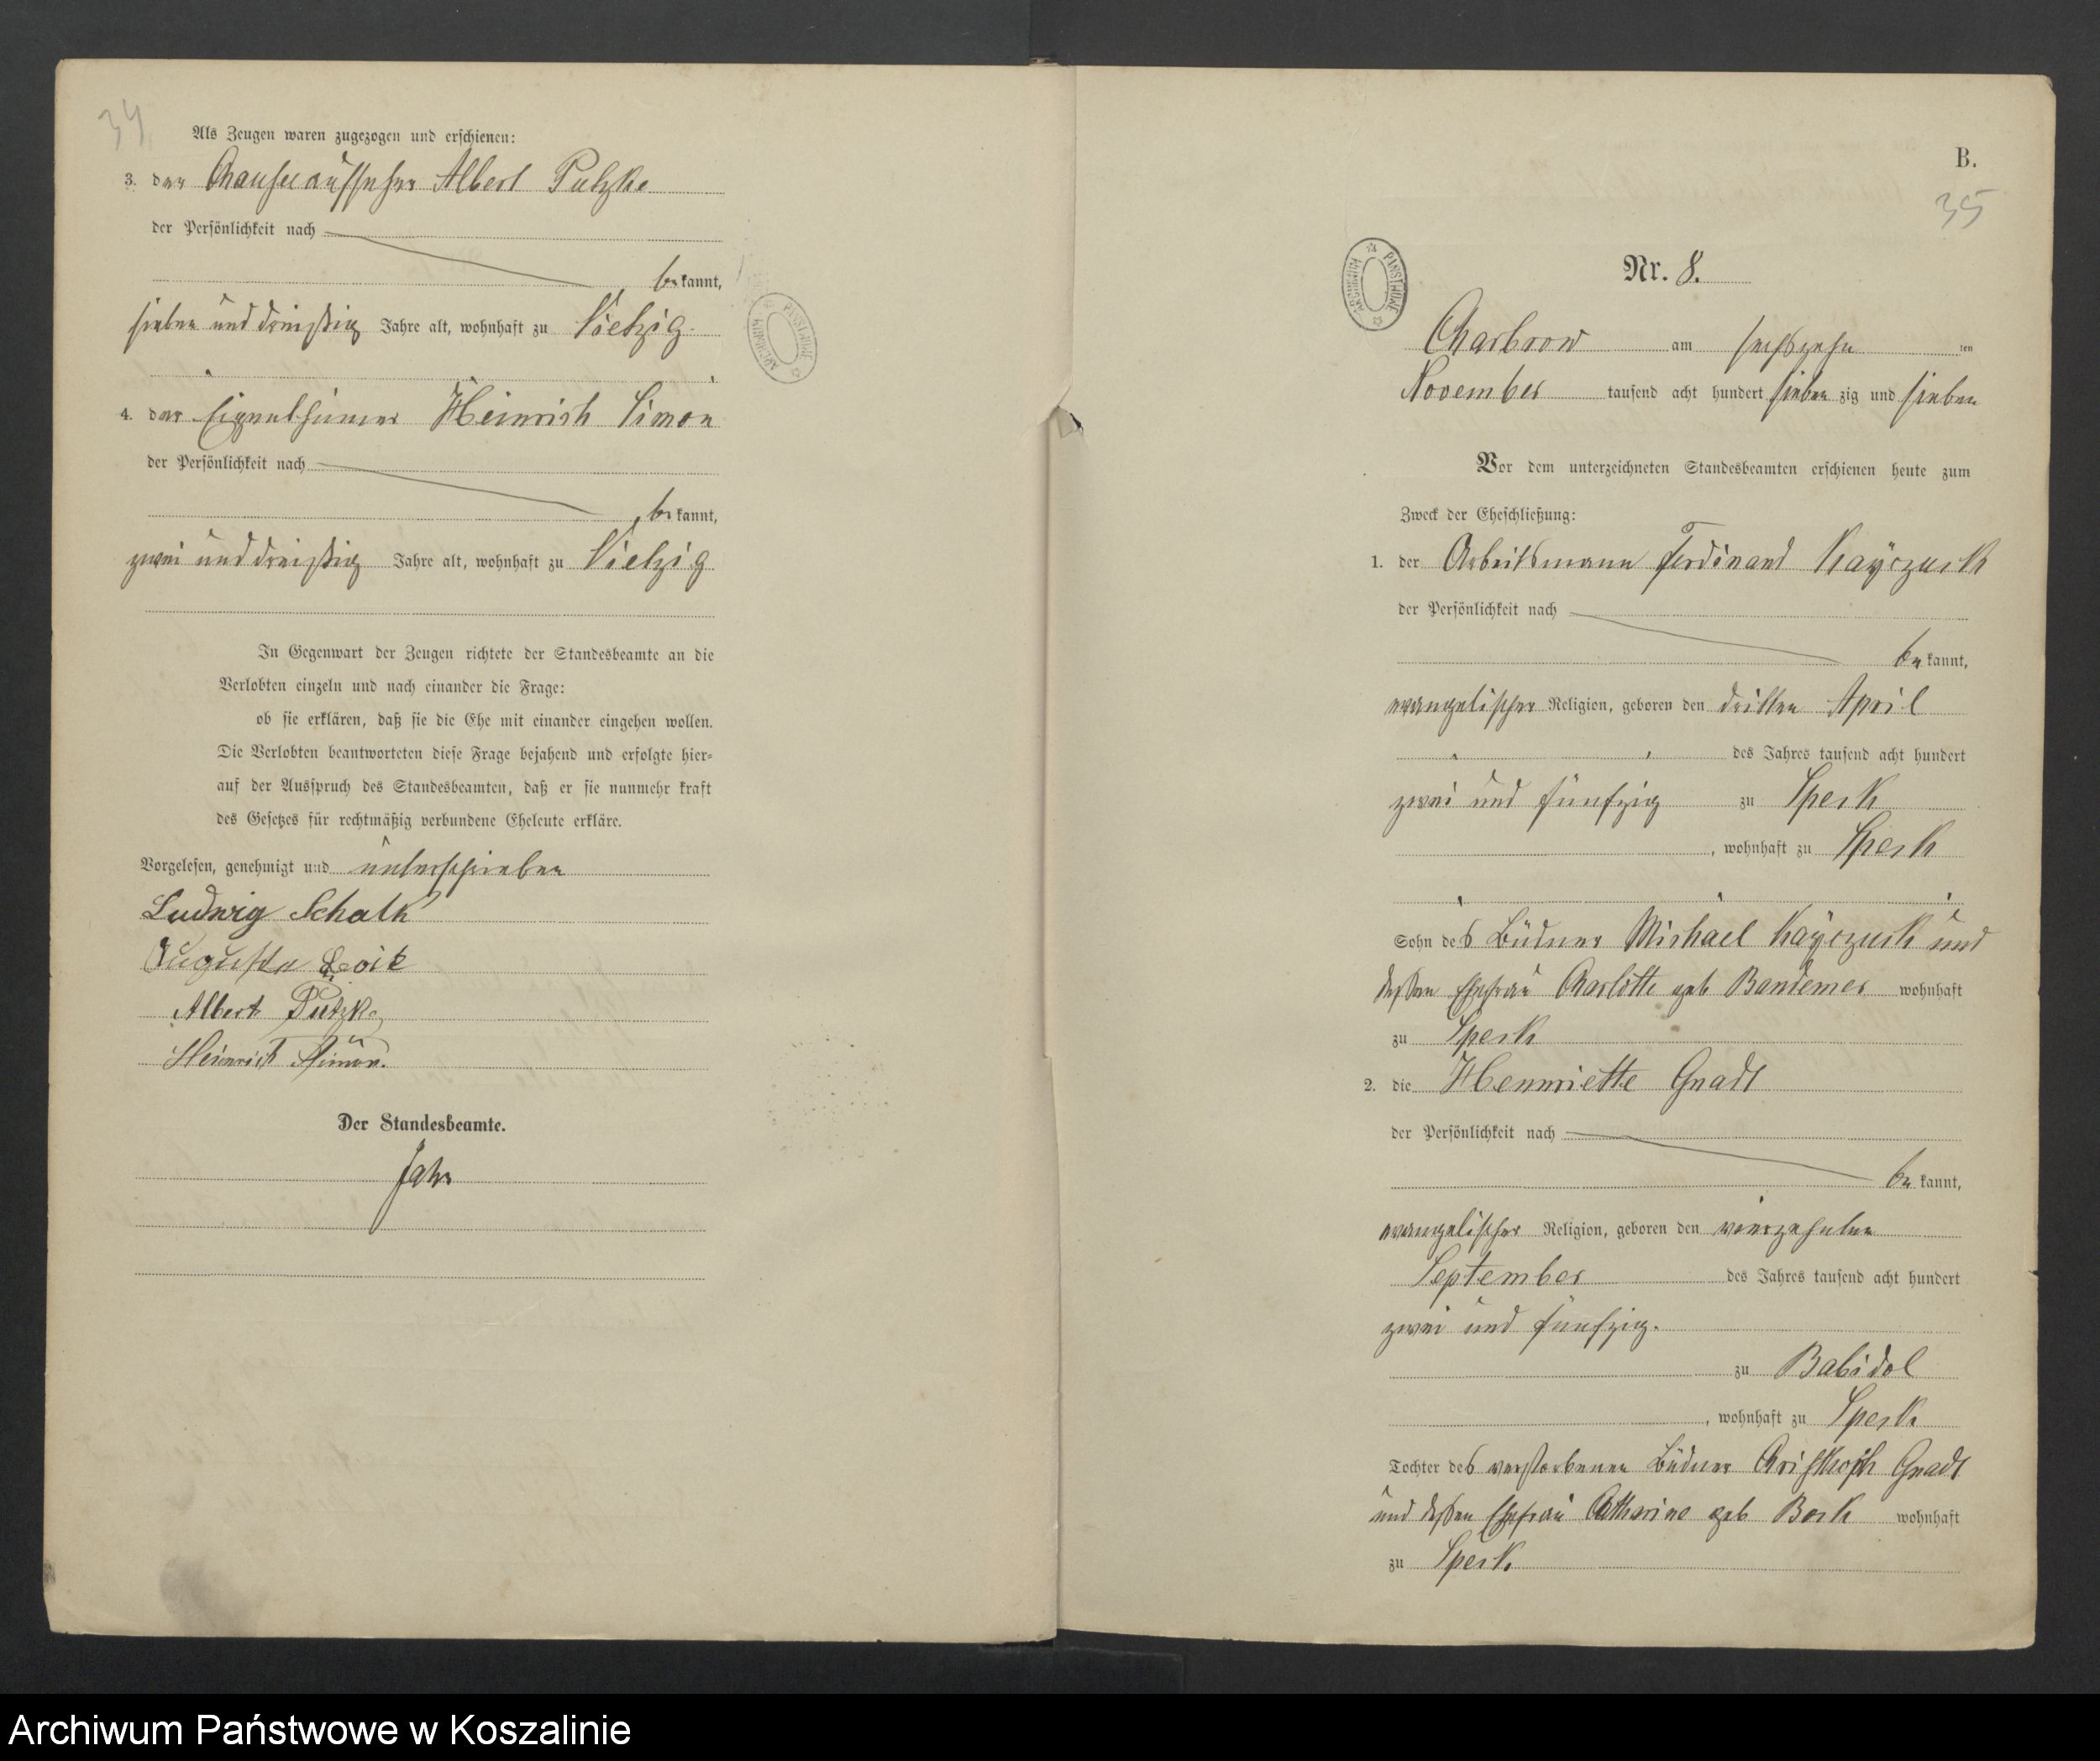 34
Als Zeugen waren zugezogen und erschienen:
3. der Chausseeaufseher Albert Putzke
der Persönlichkeit nach
be kannt,
sieben und dreißig Jahre alt, wohnhaft zu Vietzig
4. der Eigenthümer Heinrich Simon
der Persönlichkeit nach
be kannt,
zwei und dreißig Jahre alt, wohnhaft zu Vietzig
In Gegenwart der Zeugen richtete der Standesbeamte an die
Verlobten einzeln und nach einander die Frage:
ob sie erklären, daß sie die Ehe mit einander eingehen wollen.
Die Verlobten beantworteten diese Frage bejahend und erfolgte hier-
auf der Ausspruch des Standesbeamten, daß er sie nunmehr kraft
des Gesetzes für rechtmäßig verbundene Eheleute erkläre.
Vorgelesen, genehmigt und unterschrieben
Ludwig Schalk
Auguste
Albert Putzke
Heinrich Simon.
Der Standesbeamte.
ARCHIWUM PAŃSTWOWE
B.
35
ARCHIWUM PAŃSTWOWE
Nr. 8.
Charbrow am sechszehn ten
November tausend acht hundert sieben zig und sieben
Vor dem unterzeichneten Standesbeamten erschienen heute zum
Zweck der Eheschließung:
1. der Arbeitsmann Ferdinand Kayczuck
der Persönlichkeit nach
be kannt,
evangelischer Religion, geboren den dritten April
des Jahres tausend acht hundert
zwei und fünfzig zu Speck
, wohnhaft zu Speck
Sohn des Büdner Michael Kayczuck und
dessen Ehefrau Charlotte geb Bandemer wohnhaft
zu Speck
2. die Henriette Gnadt
der Persönlichkeit nach
be kannt,
evangelischer Religion, geboren den vierzehnten
September des Jahres tausend acht hundert
zwei und fünfzig.
zu Babidol
, wohnhaft zu Speck
Tochter des verstorbenen Büdner Christhoph Gnadt
und dessen Ehefrau Catharine geb Bork wohnhaft
zu Speck
Archiwum Państwowe w Koszalinie